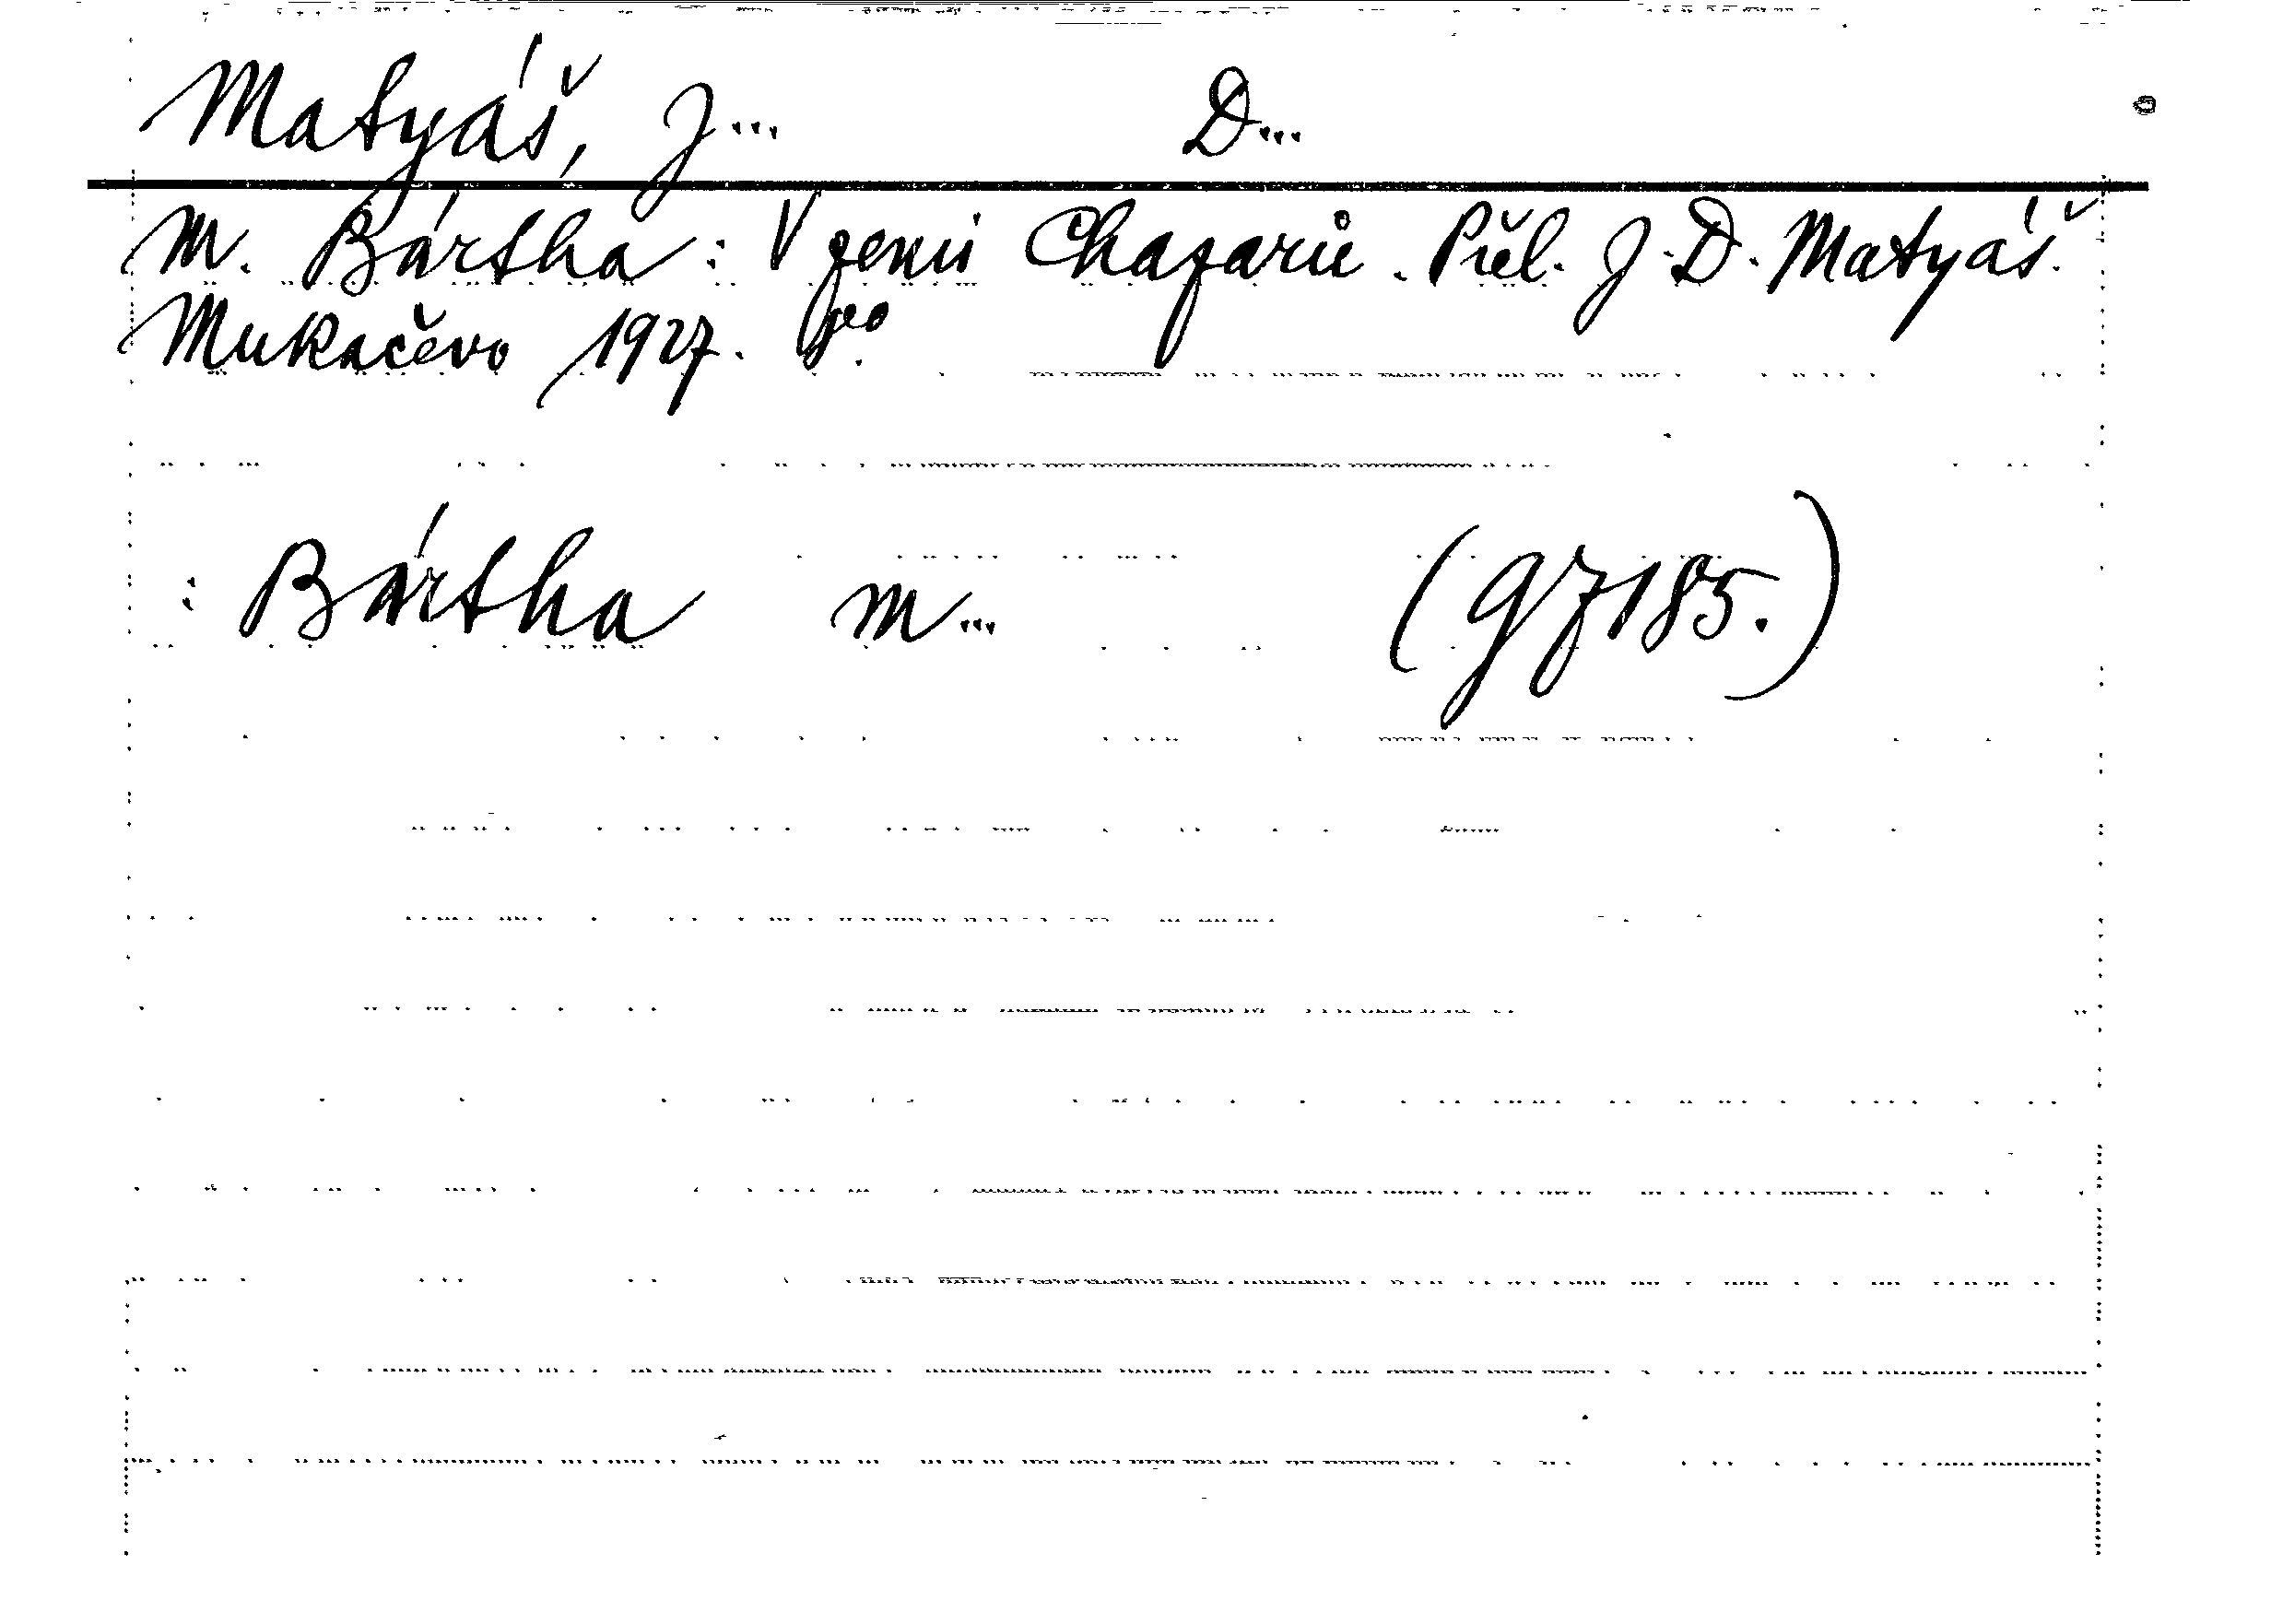 Matyáš, J... D...
M. Bártha: V zemi Chazarů. Přel. J. D. Matyáš.
Mukačevo 1927. 8°.
: Bártha M... (97185.)